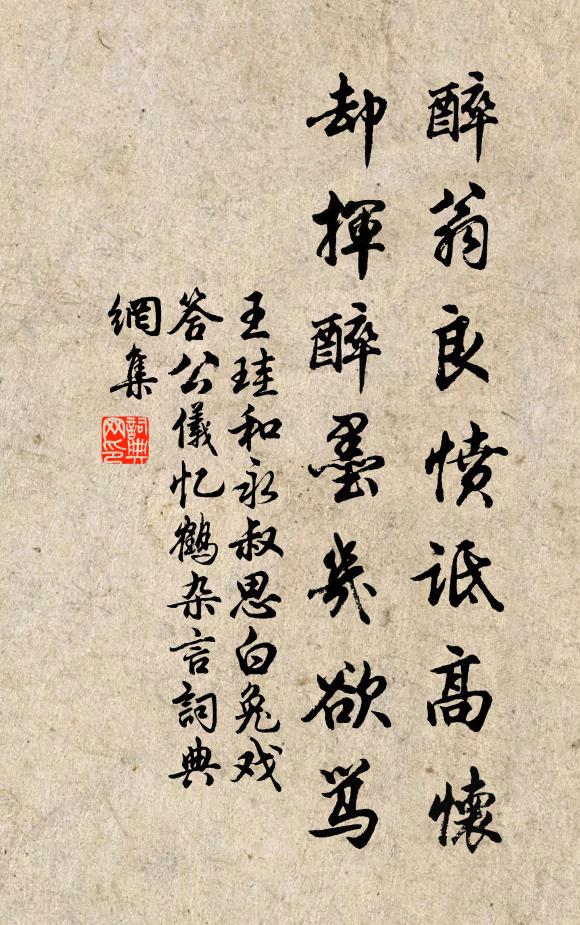 醉翁良愤诋高懷
却揮醉墨幾欲骂
王珪和永叔思白兔戏
答公儀忆鶴杂言詞典
網集
詞典網印